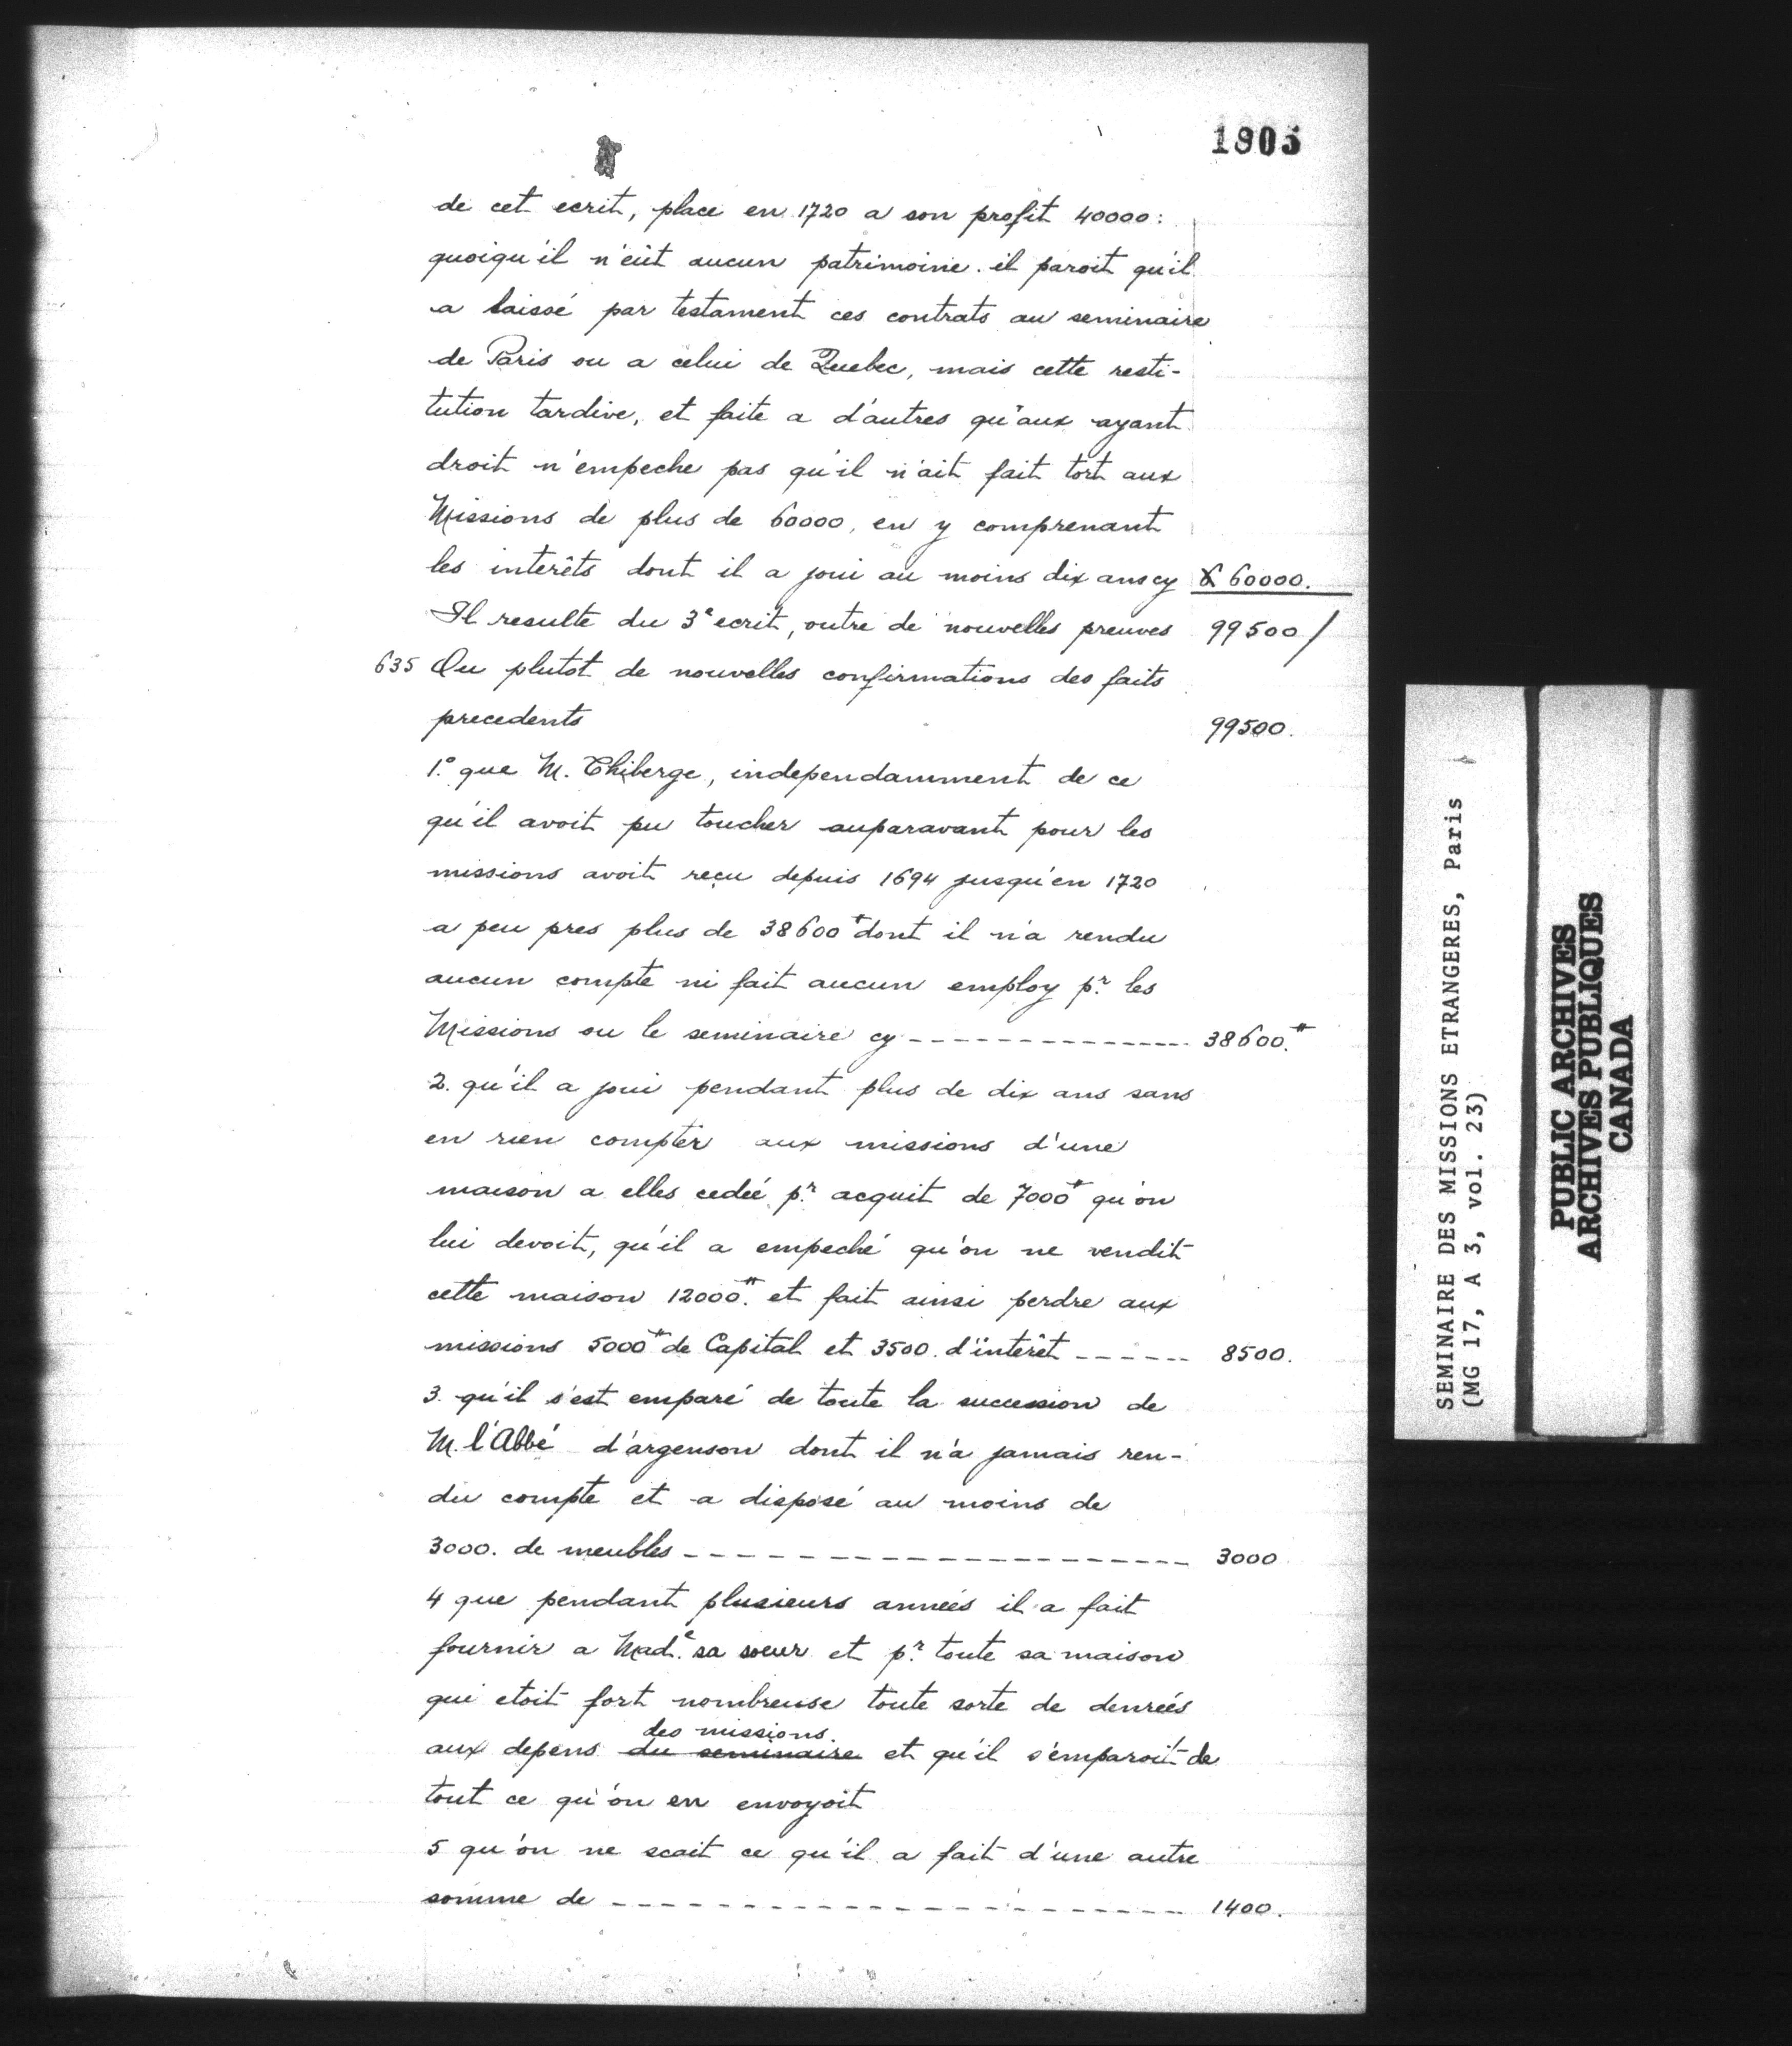 1805
de cet ecrit, place en 1720 a son profit 40000:
quoiqu'il n'eût aucun patrimoine. il paroit qu'il
a laissé par testament ces contrats au seminaire
de Paris ou a celui de Quebec, mais cette resti-
tution tardive, et faite a d'autres qu'aux ayant
droit n'empeche pas qu'il n'ait fait tort aux
Missions de plus de 60000, en y comprenant
les interêts dont il a joui au moins dix ans cy 60000.
Il resulte du 3e ecrit, outre de nouvelles preuves 99500/
635 Ou plutot de nouvelles confirmations des faits
precedents 99500.
1.º que M. Thiberge, independamment de ce
qu'il avoit pu toucher auparavant pour les
missions avoit reçu depuis 1694 jusqu'en 1720
a peu pres plus de 38600# dont il n'a rendu
aucun compte ni fait aucun employ pr. les
Missions ou le seminaire cy --------------- 38600.#
2. qu'il a joui pendant plus de dix ans sans
en rien compter aux missions d'une
maison a elles cedée pr. acquit de 7000# qu'on
lui devoit, qu'il a empeché qu'on ne vendit
cette maison 12000.# et fait ainsi perdre aux
missions 5000# de Capital et 3500. d'intérêt ------ 8500.
3. qu'il s'est emparé de toute la succession de
M. l'Abbé d'argenson dont il n'a jamais ren-
du compte et a disposé au moins de
3000. de meubles -------------------- 3000
4 que pendant plusieurs années il a fait
fournir a Made. sa soeur et pr. toute sa maison
qui etoit fort nombreuse toute sorte de denrées
des missions.
aux depens du seminaire et qu'il s'emparoit de
tout ce qu'on en envoyoit
5 qu'on ne scait ce qu'il a fait d'une autre
somme de ---------------------- 1400.
SEMINAIRE DES MISSIONS ETRANGERES, Paris
(MG 17, A 3, vol. 23)
PUBLIC ARCHIVES
ARCHIVES PUBLIQUES
CANADA